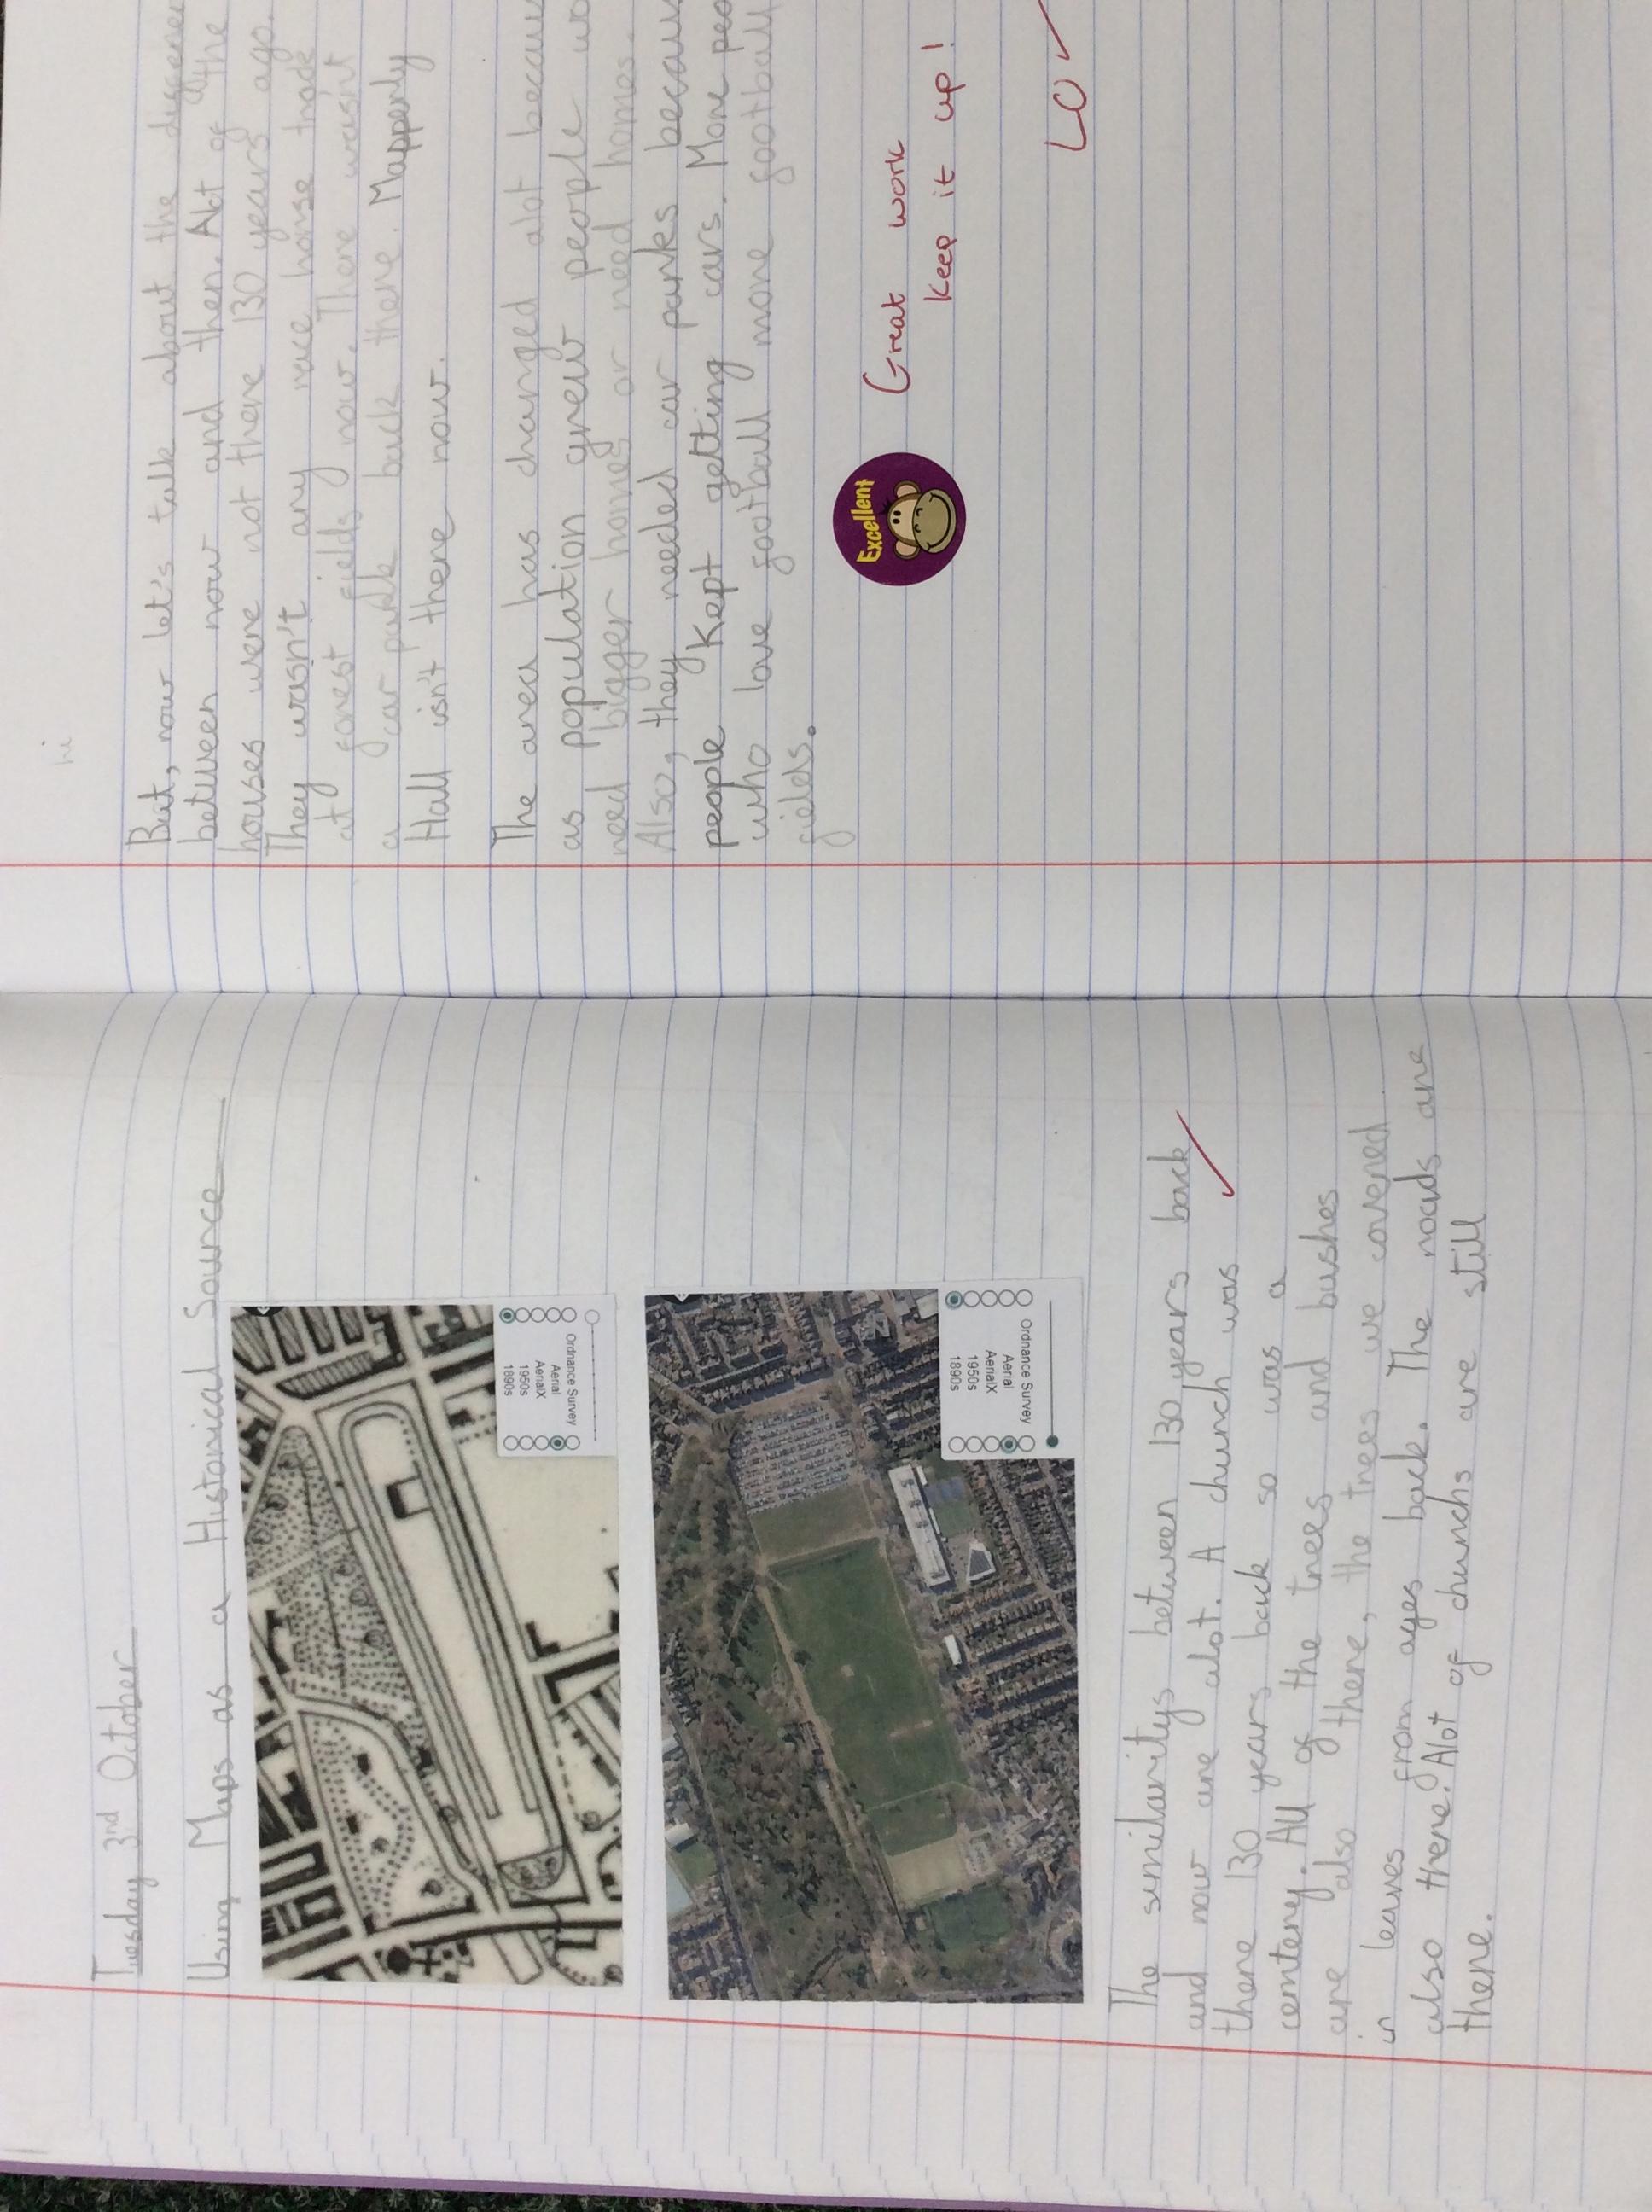 Tuesday 3rd October
Using Maps as a Historical Source
Ordnance Survey
Aerial
AerialX
1950s
1890s
Ordnance Survey
Aerial
AerialX
1950s
1890s
The similaritys between 130 years back
and now are alot. A church was
there 130 years back so was a
centery. All of the trees and bushes
are also of there, the trees we covered
in leaves from ages back. The roads are
also there. Alot of churchs are still
there.
hi
But, now let's talk about the
between now and then. Alot of the
houses were not there 130 years ago.
They wasn't any race horse trade
at forest fields now. There wasn't
a car park back there. Mapperly
Hall isn't there now.
The area has changed alot
as population grew people
need bigger homes or need homes.
Also, they needed car parks
people kept getting cars. More
who love football more football
fields.
Excellent
Great work
keep it up!
LO